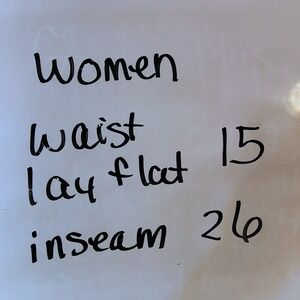 Women
waist
lay flat 15
inseam 26